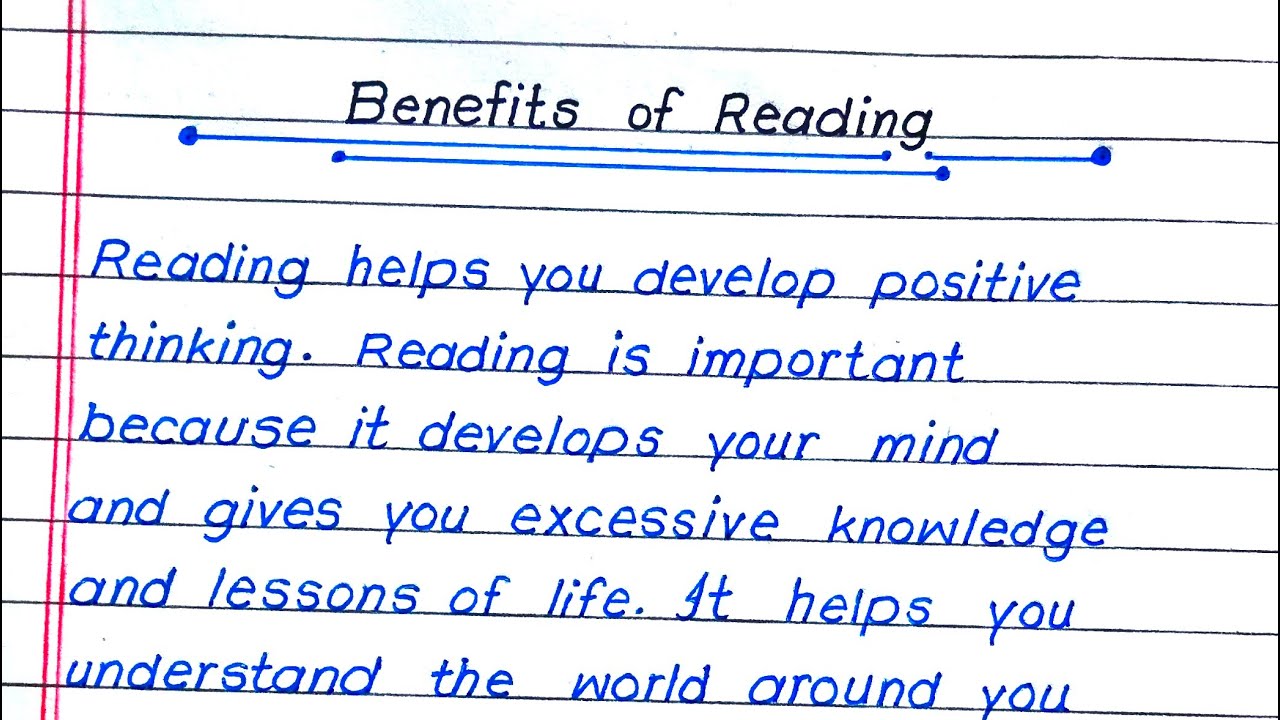 Benefits of Reading
Reading helps you develop positive
thinking. Reading is important
because it develops your mind
and gives you excessive knowledge
and lessons of life. It helps you
understand the world around you